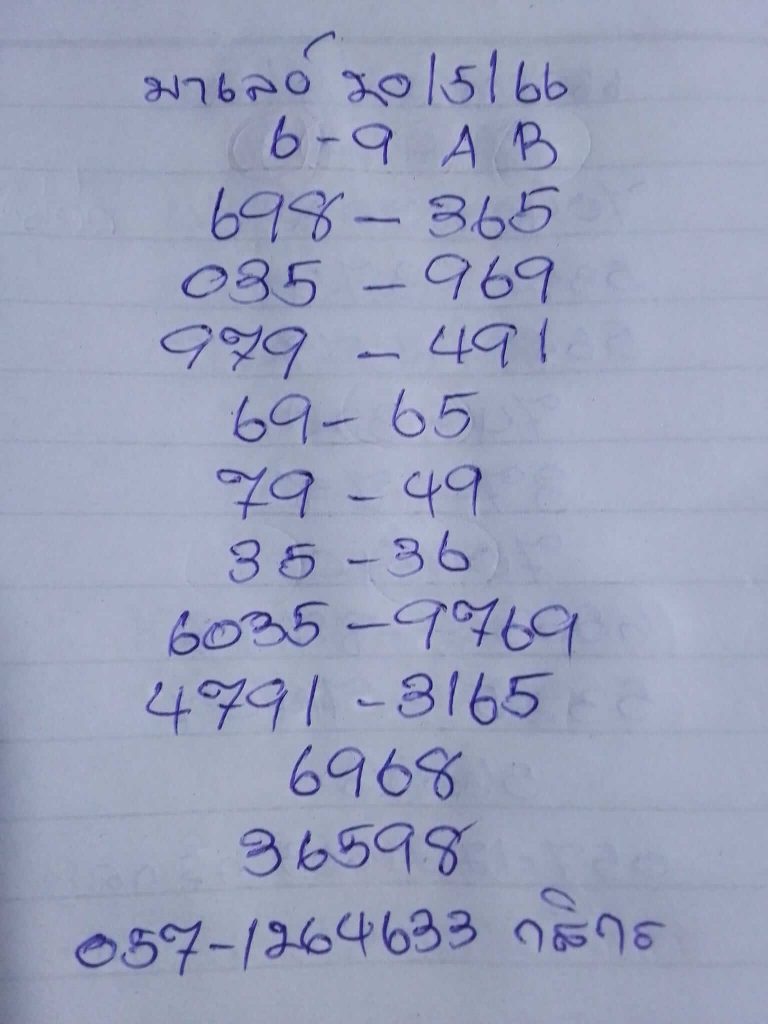 มาเลย์ 20/5/66
6-9 A B
698 - 365
035 - 969
979 - 491
69 - 65
79 - 49
35 - 36
6035 - 9769
4791 - 3165
6968
36598
057-1264633